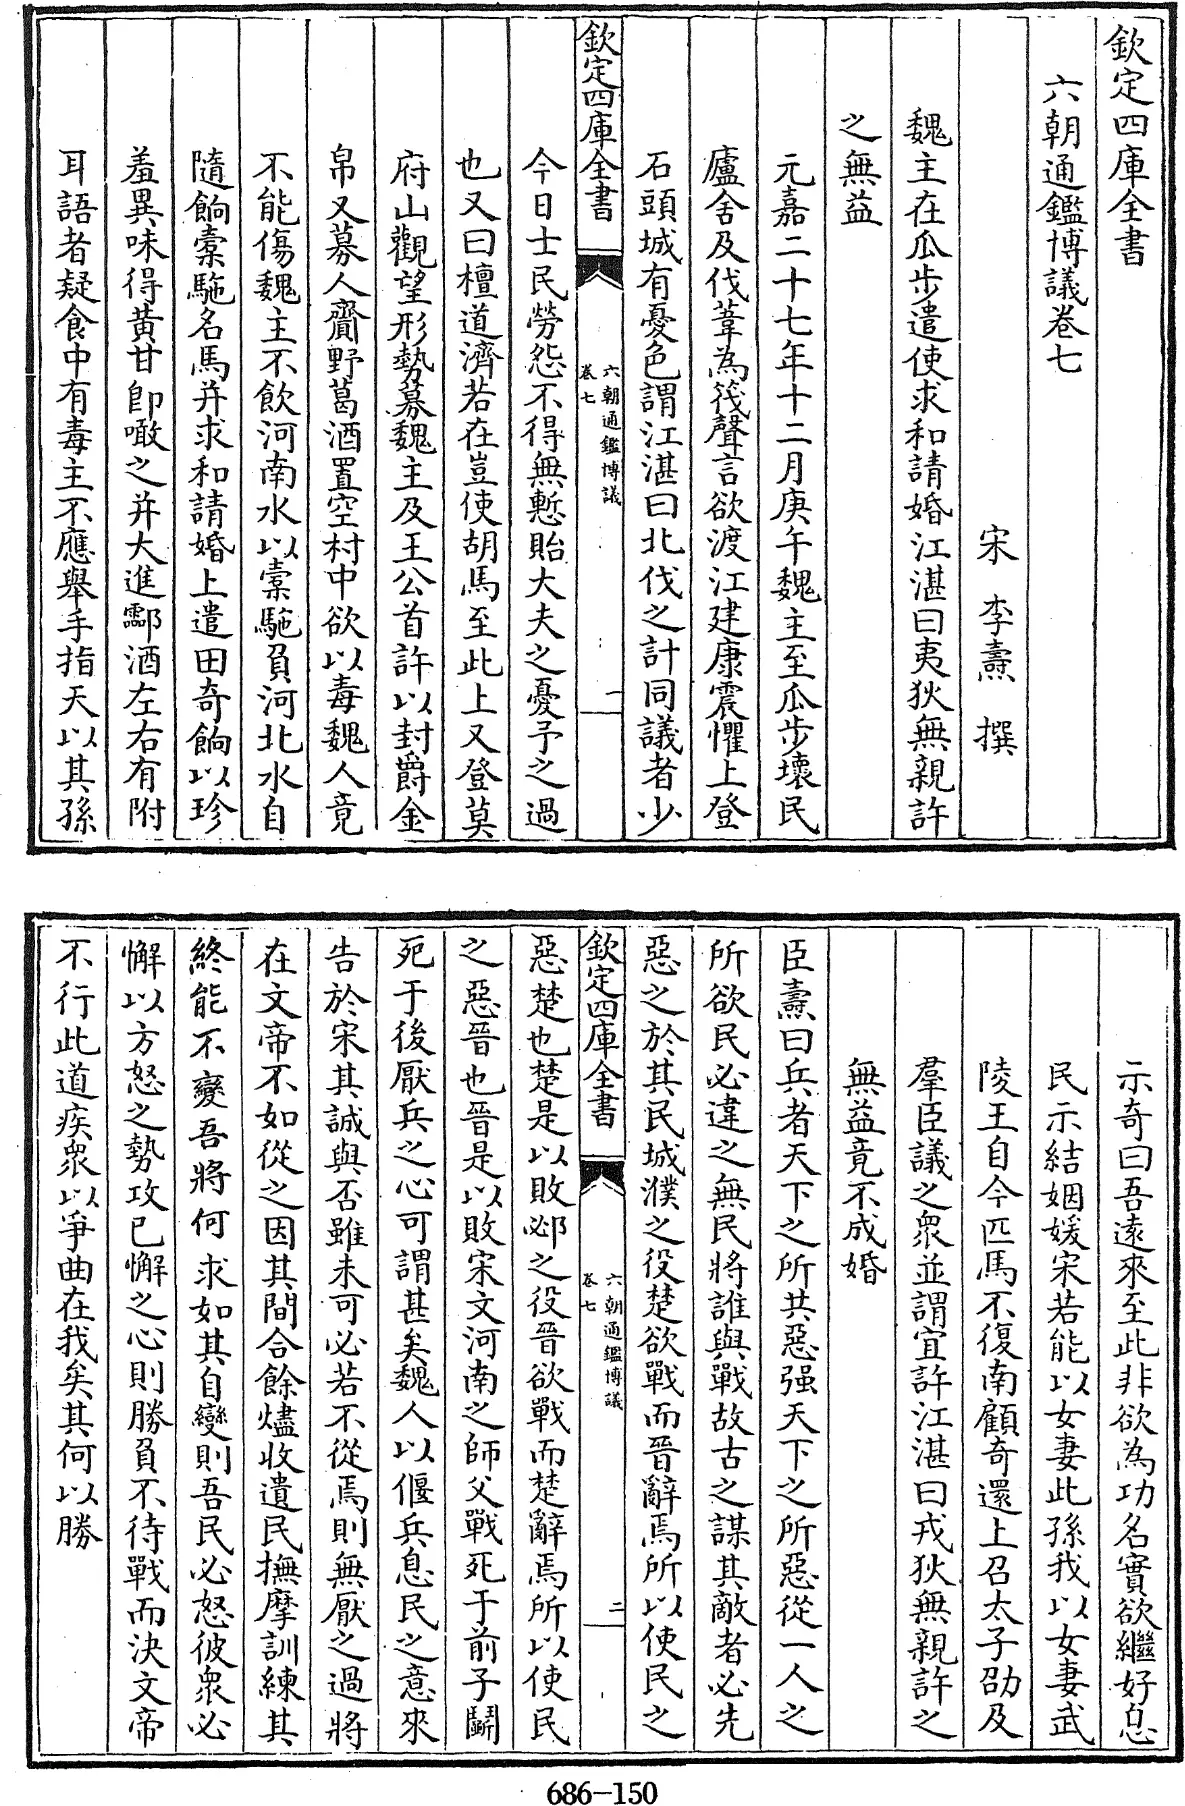 欽定四庫全書
六朝通鑑博議卷七
宋 李燾 撰
魏主在瓜步遣使求和請婚江湛曰夷狄無親許
之無益
元嘉二十七年十二月庚午魏主至瓜步壞民
廬舍及伐葦為筏聲言欲渡江建康震懼上登
石頭城有憂色謂江湛曰北伐之計同議者少
欽定四庫全書
六朝通鑑博議
卷七
一
今日士民勞怨不得無慙貽大夫之憂予之過
也又曰檀道濟若在豈使胡馬至此上又登莫
府山觀望形勢募魏主及王公首許以封爵金
帛又募人齎野葛酒置空村中欲以毒魏人竟
不能傷魏主不飲河南水以橐駞負河北水自
隨餉橐駞名馬并求和請婚上遣田奇餉以珍
羞異味得黃甘即噉之并大進酃酒左右有附
耳語者疑食中有毒主不應舉手指天以其孫
示奇曰吾遠來至此非欲為功名實欲繼好息
民示結姻媛宋若能以女妻此孫我以女妻武
陵王自今匹馬不復南顧奇還上召太子劭及
羣臣議之衆並謂宜許江湛曰戎狄無親許之
無益竟不成婚
臣燾曰兵者天下之所共惡强天下之所惡從一人之
所欲民必違之無民將誰與戰故古之謀其敵者必先
惡之於其民城濮之役楚欲戰而晉辭焉所以使民之
欽定四庫全書
六朝通鑑博議
卷七
二
惡楚也楚是以敗邲之役晉欲戰而楚辭焉所以使民
之惡晉也晉是以敗宋文河南之師父戰死于前子鬭
死于後厭兵之心可謂甚矣魏人以偃兵息民之意來
告於宋其誠與否雖未可必若不從焉則無厭之過將
在文帝不如從之因其間合餘燼收遺民撫摩訓練其
終能不變吾將何求如其自變則吾民必怒彼衆必
懈以方怒之勢攻已懈之心則勝負不待戰而決文帝
不行此道疾衆以爭曲在我矣其何以勝
686-150